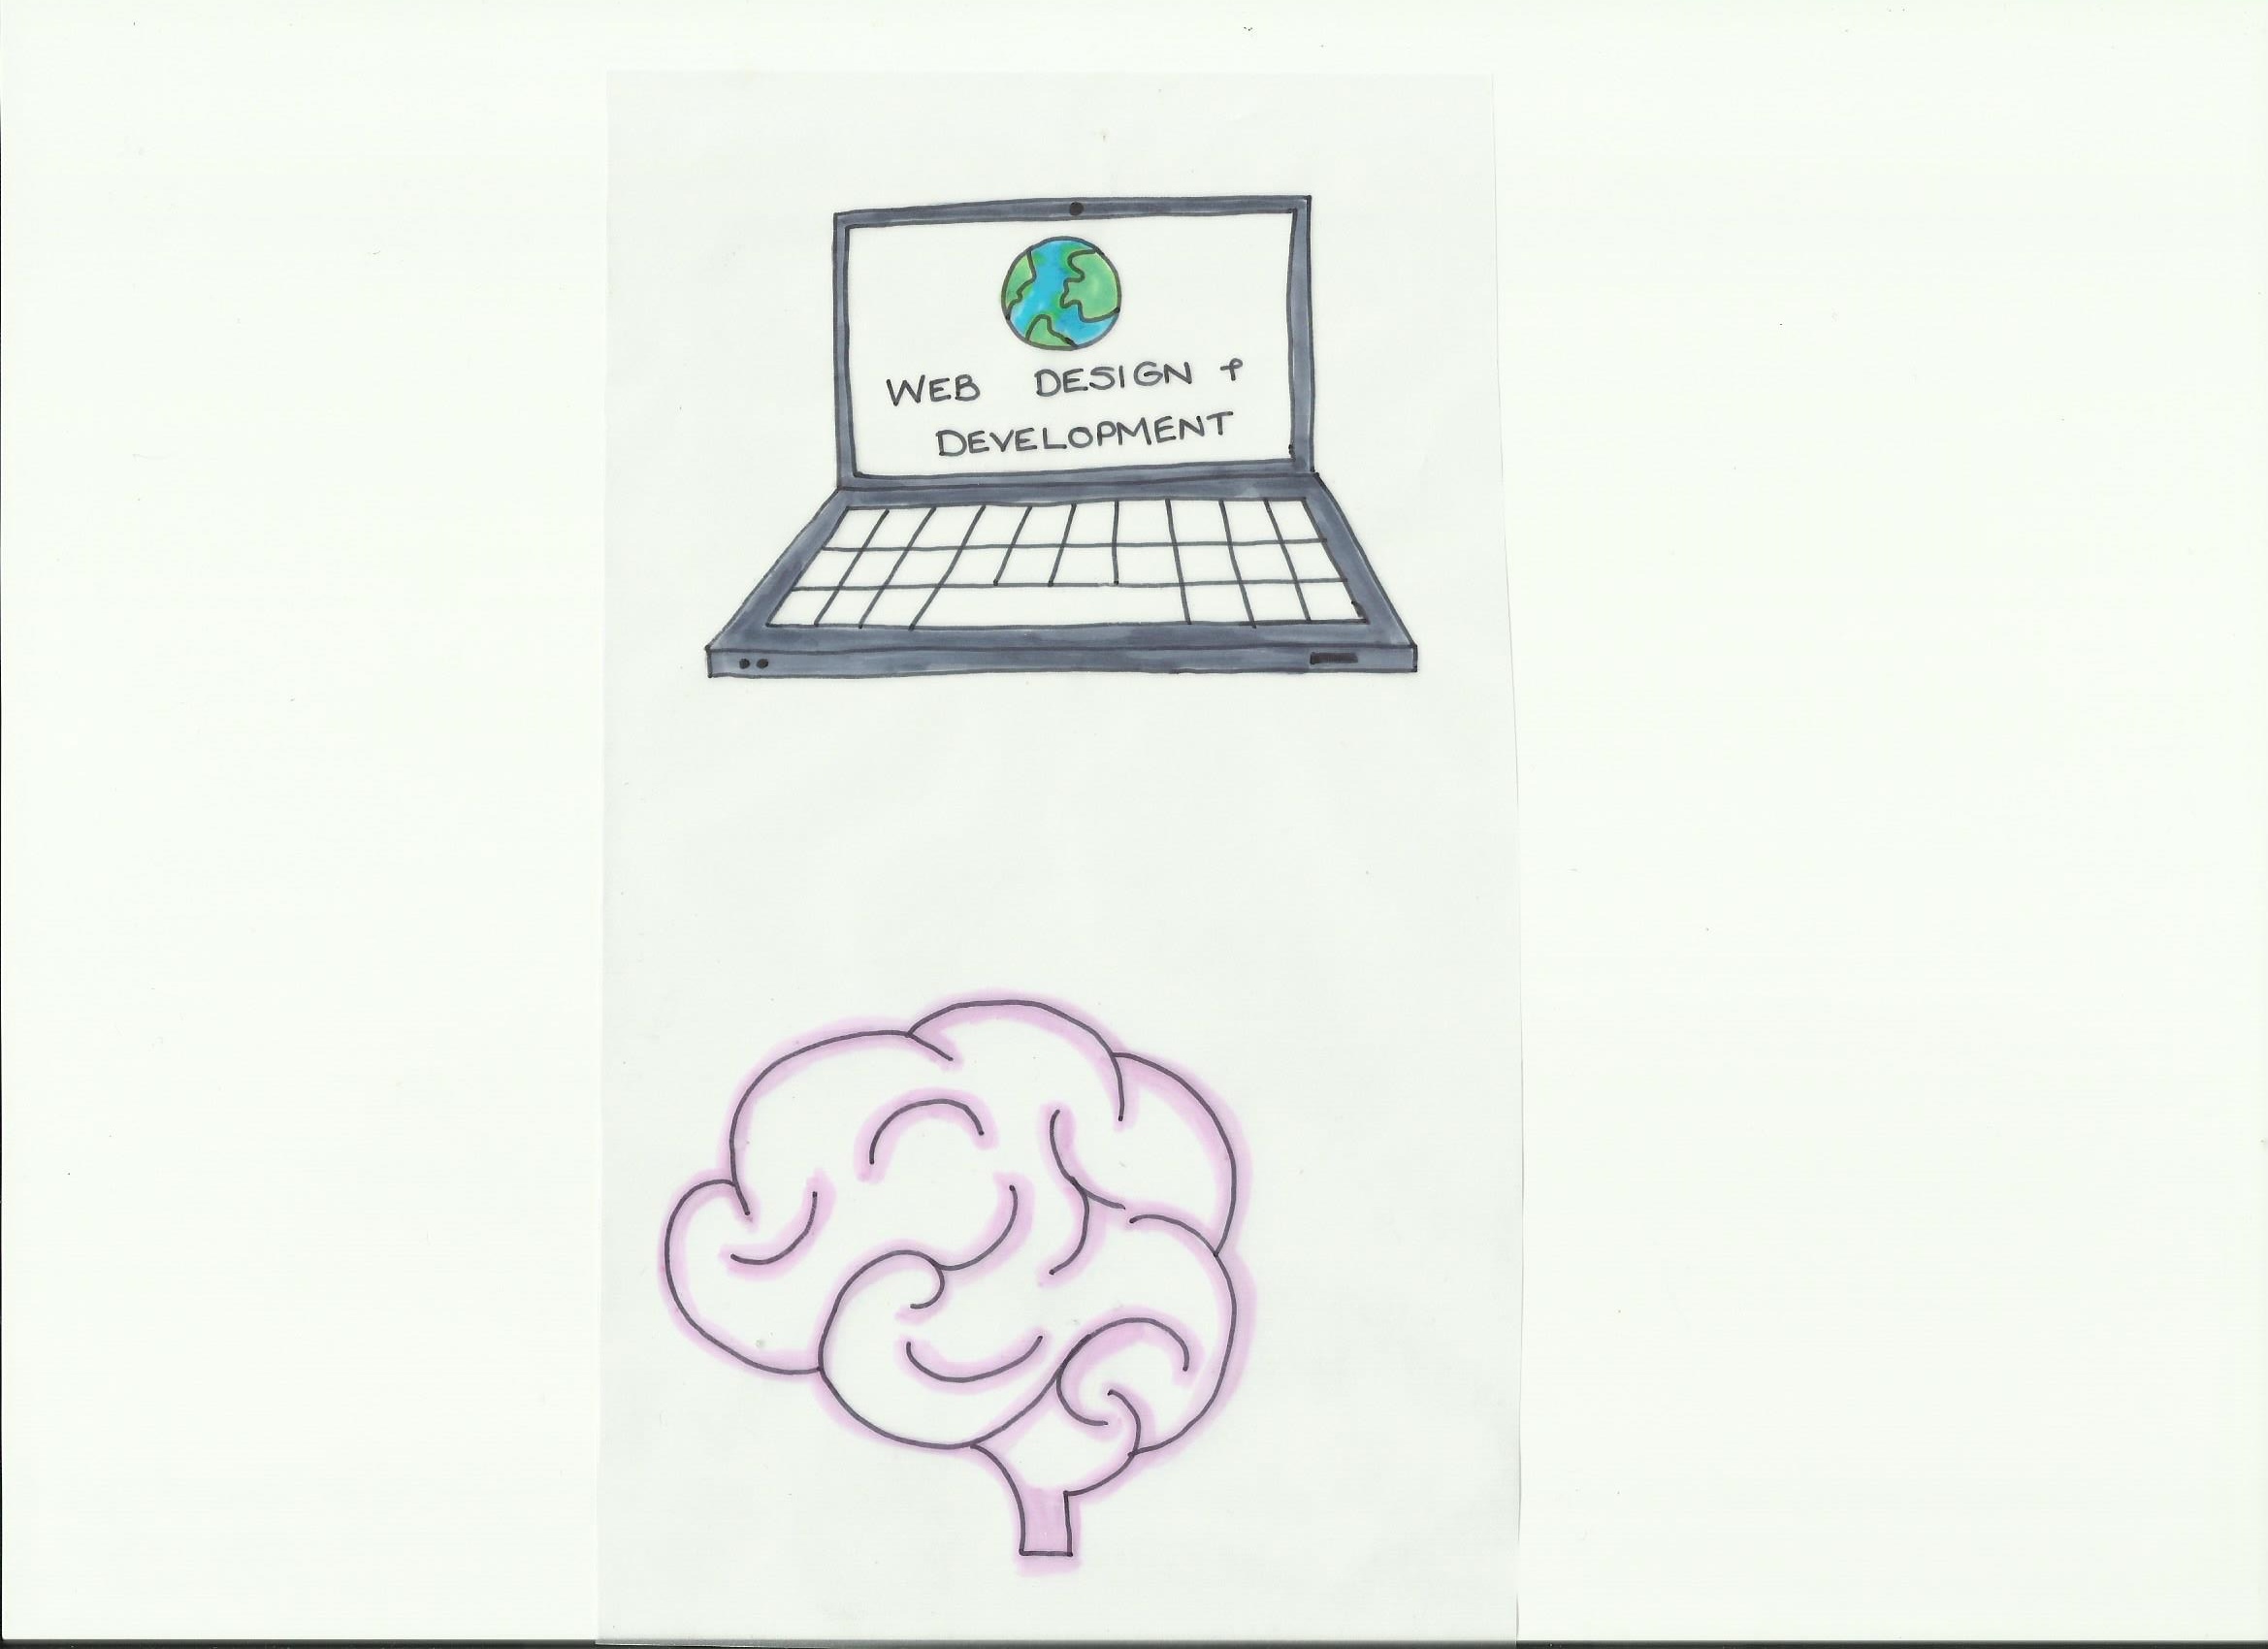 WEB DESIGN +
DEVELOPMENT